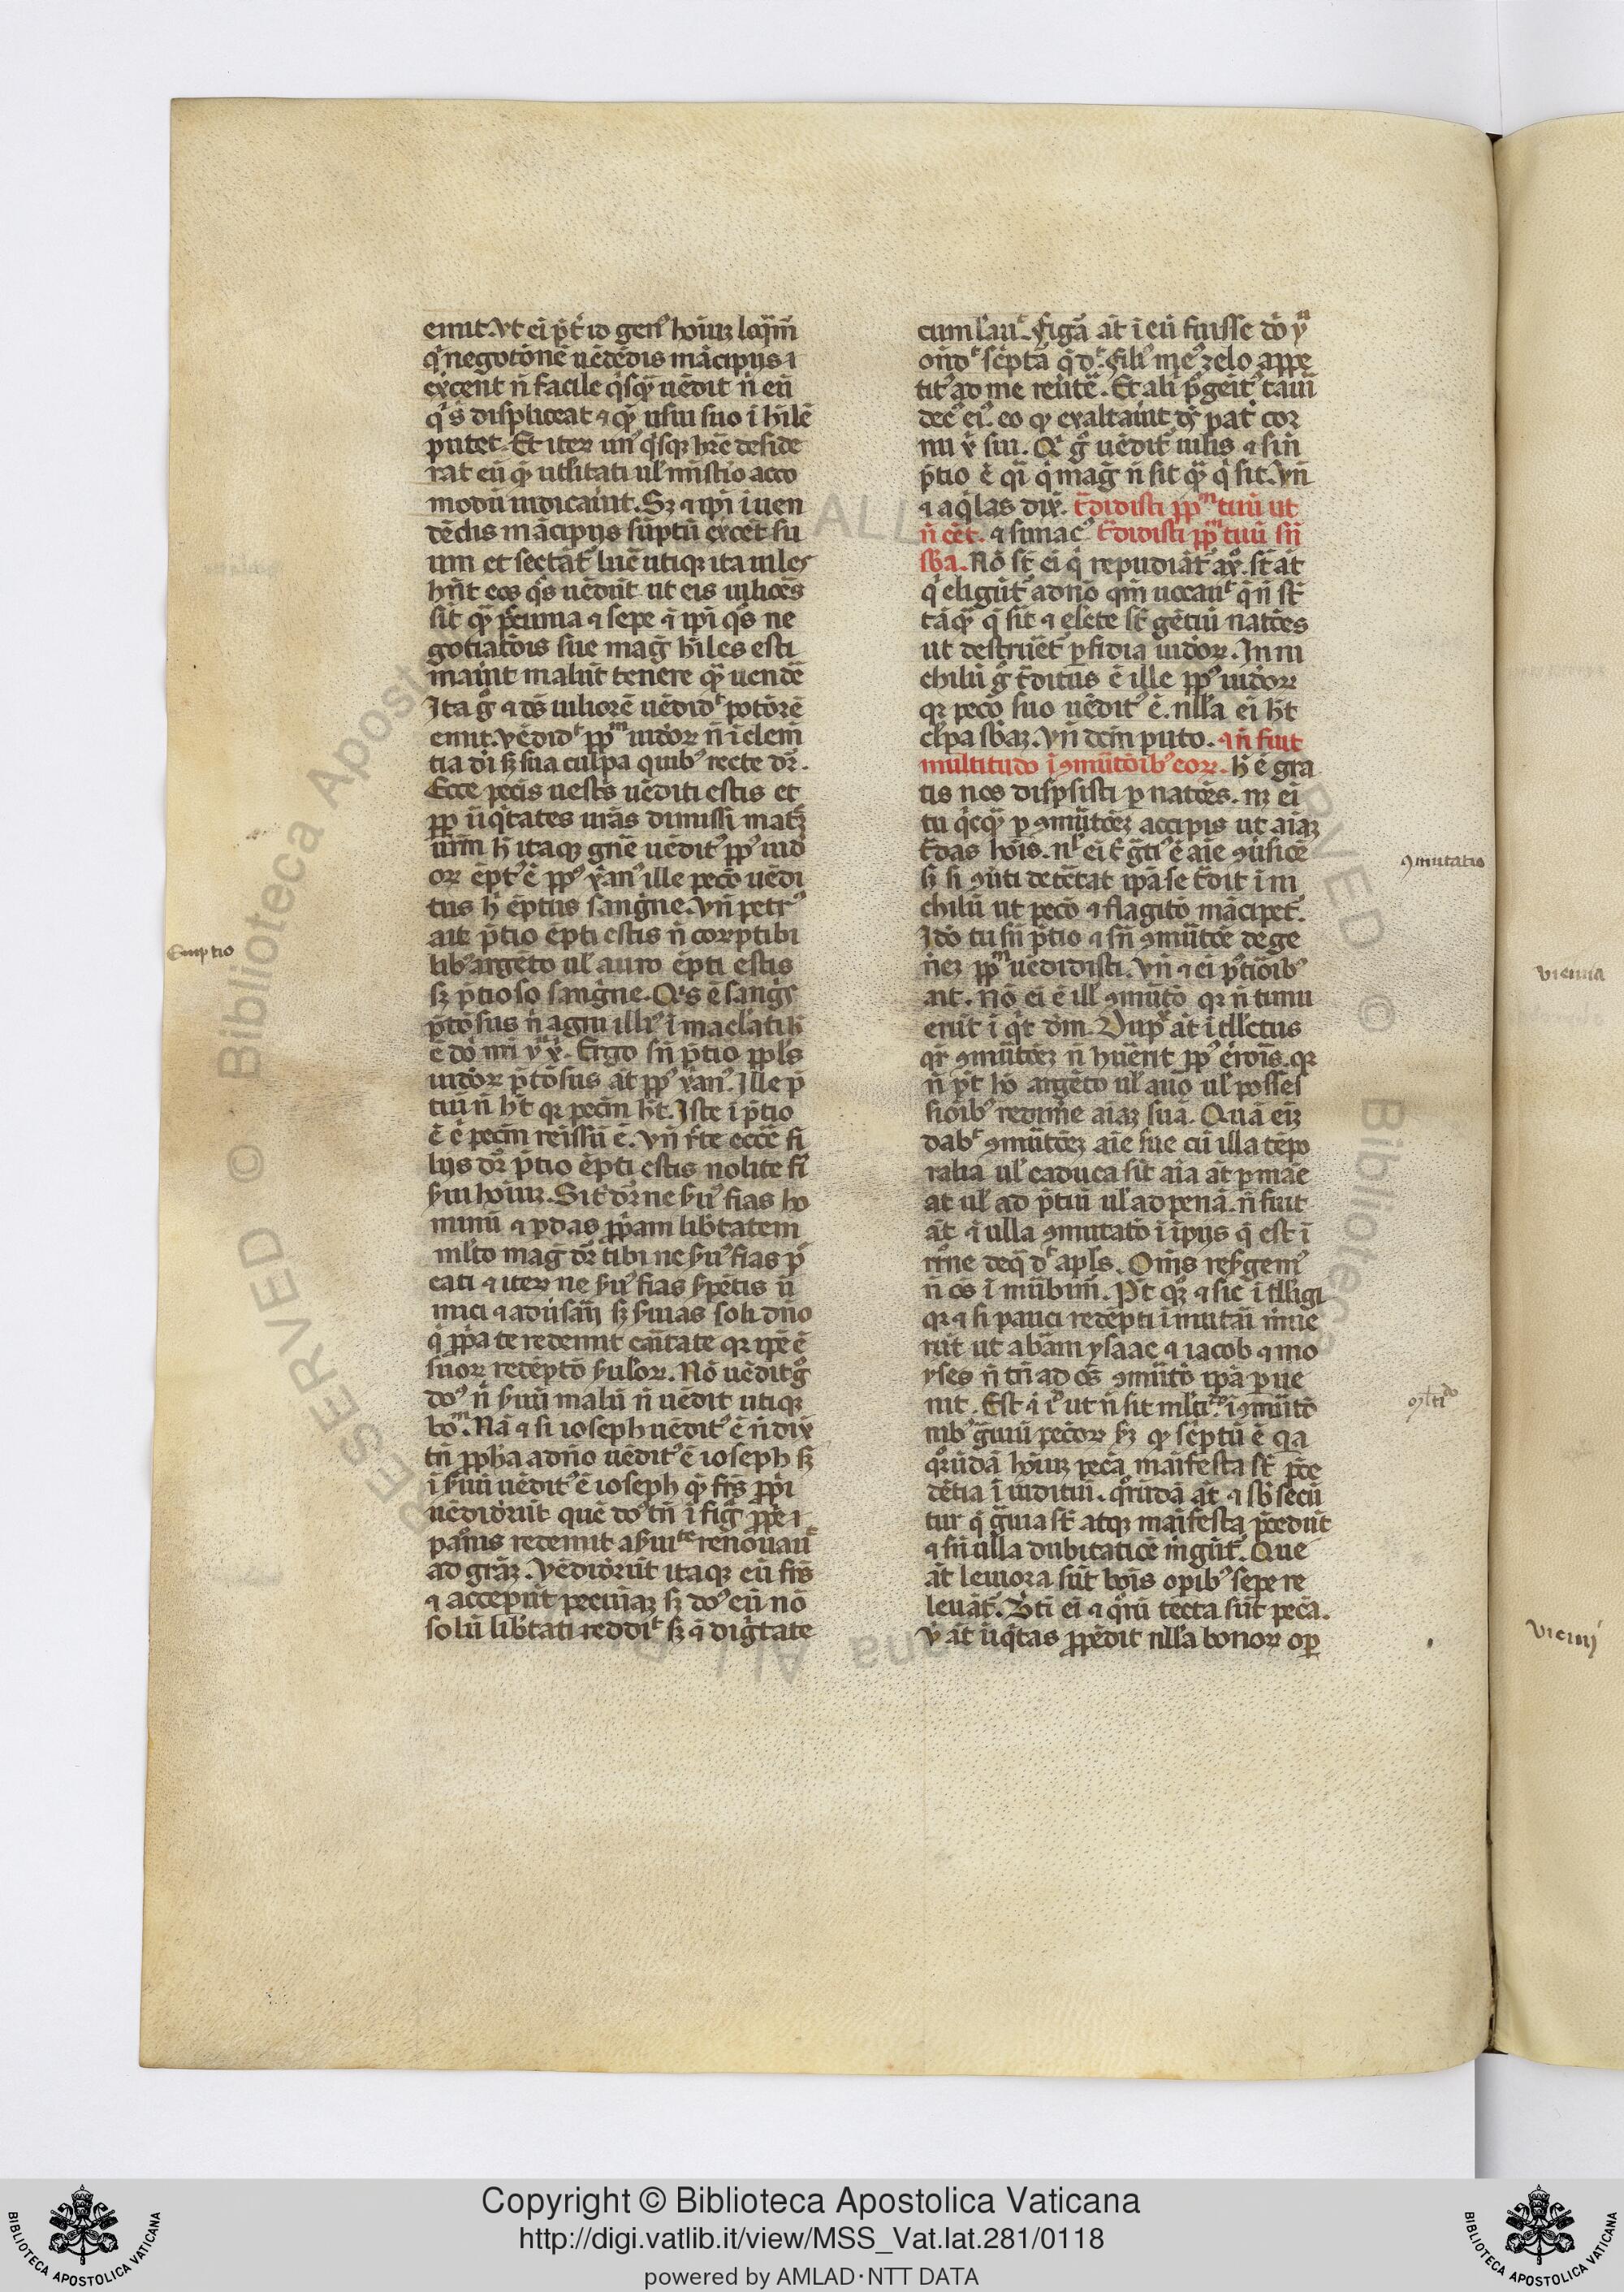 emit. vt ei p̄t̄ id gen᷒ hoīuꝫ loq̄m̄
q̇ negotōnē uēdēdis mācipijs ⁊
ex̄cent n̄ facile q̇sq̄ȝ uēdit n̄ eū
q̇ s̄ displiceat ⁊ qȝ usui suo ī hīlē
putet. Et iteꝝ un᷒ q̇sqꝫ hr̄e deside
rat eū qȝ utilitati ul̄ mīstīo acco
modū iudicaūit. Sꝫ ⁊ ipī i uen
dēdis mācipijs sūptū ex̄cēt su
um et sectāt᷑ luc̄ utiqꝫ ita uiles
hn̄t eos q̇s uēdūt ut eis uilioēs
sīt qȝ pēcunia ⁊ sepe ⁊ ipī q̇s ne
gotiatōis sue mag̃ hīles esti
maūit malūt tenere qȝ uende
Ita g̊ ⁊ ds̄ uiliorē uēdid᷑ potōrē
emit. vēdid᷑ pp̄m iudoꝝ n̄ i clem̄
tia dī sꝫ sua culpa quib᷒ recte dr̄.
Ecce pecīs uest̄s uēditi estis et
pp̄ iīq̇tates ur̄as dimissi mat̄ꝫ
ur̄m h̄ itaqꝫ gn̄e uēdit᷒ pp̄s iud
oꝝ ēpt᷒ ē pp̄s x̄an᷒ ille pecō uēdi
tus h̄ ēptus sang̃ne. Vn̄ petr᷒
ait p̄tio ēpti estis n̄ coꝝptibi
lib᷒ argēto ul̄ auro ēpti estis
sꝫ p̄tioso sang̃ne. Q̇s ē sangs
Emptio
ē dō nr̄i yū x̄. Ergo sn̄ p̄tio ppl̄s
iudōꝝ p̄tōsus āt pp̄s x̄an᷒. Ille p̄
tiū n̄ h̄t qꝛ pecm̄ h̄t. Iste i p̄tio
lijs dr̄ p̄tio ēpti estis nolite fī
minū ⁊ ꝑdas pp̄am lib̄tatem
ml̄to mag̃ dr̄ tibi ne s̄u᷒ fias p̄
cati ⁊ iteꝝ ne s̄u᷒ fias s̄pētis ī
mici ⁊ adūsarīj sꝫ s̄uias soli dn̄o
q̇ pp̄a te redemit cār̄tate qꝛ ip̄e ē
suoꝝ redēptō s̄uloꝝ. Nō uēdit g̊
do᷒ n̄ s̄uū malū n̄ uēdit utiqꝫ
bōm. Nā ⁊ si ioseph uēdit᷒ ē n̄ dix̄
tn̄ pp̄ha a dn̄o uēdit᷒ ē ioseph sꝫ
i s̄uū uēdit᷒ ē ioseph qȝ fr̄s pp̄i
uēdidr̄ūt quē do᷒ tn̄ i fig̃
redemit a s̄uite renouau᷑
ad grāꝫ. Vēdidr̄ūt itaqꝫ eū fr̄s
⁊ acceꝑūt pecuīaꝫ sꝫ do᷒ eū nō
solū lib̄tati reddi᷑ sꝫ ⁊ dig̃tate
cumlau᷑. Figā āt i eū fuisse dō yu
on̄d᷑ sc̄ptā q̇ d᷑. Fili᷒ me᷒ zelo appe
tit᷒ ad me reūtē. Et ali p̄geit᷒ tauri
dec᷒ ei᷒. eo qȝ exaltaūit ds̄ pat̄ cor
nu x̄ sui. Q̇ g̊ uēdit᷑ uilis ⁊ sin̄
p̄tio ē qī q̇ mag̃ n̄ sit qȝ q̇ sit. Vn̄
⁊ aq̇las dix̄. t̄didisti pp̄m tuū ut
n̄ eēt. ⁊ simac᷒ t̄didisti pp̄m tuū sn̄
sb̄a. Nō st̄ ei q̇ repudiāt᷑ ax̊. st̄ āt
q̇ eligūt᷑ a dn̄o qm̄ uocau᷑ q̇ n̄ st̄
tāqȝ q̇ sīt ⁊ elēte st̄ gētiū natōes
ut destruēt᷑ ꝑfidia iudoꝝ. In ni
chilū g̊ t̄ditus ē ille pp̄s iudoꝝ
qꝛ pecō suo uēdit᷒ ē. nll̄a ei h̄t
cl̄pa sb̄aꝫ. Vn̄ dem̄ puto. ⁊ n̄ fuit
multitudo i ꝯmūtōib᷒ eoꝝ. h̄ ē gra
tis nos dispsisti ꝑ natōes. nꝫ ei
tu q̇cqȝ ꝑ ꝯmūtōeꝫ accipis ut aiaꝫ
t̄das hoīs. nˡ ei t̄ g̃ti᷒ ē aīe ꝯmūsicē
ꝯmutatio
chilū ut pecō ⁊ flagitō mācipet᷑.
Idō tu sn̄ p̄tio ⁊ sn̄ ꝯmūtōe de ge
n̄eꝫ pp̄m uēdidisti. Vn̄ ⁊ ei p̄tiōib᷒
ait. Nō ei ē ill̄ ꝯmūtō qꝛ n̄ timu
erūt i q̇t dm̄. Dup̄x āt i tll̄ectus
qꝛ ꝯmūtōeꝫ n̄ hūerīt pp̄s ērōīs. qꝛ
n̄ p̄t hō argēto ul̄ auō ul̄ posses
siōib᷒ redim̄e aiaꝫ suā. Quā eīꝫ
dab᷑ ꝯmūtōeꝫ aīe sue cū illa tēpo
ralia ul̄ caduca sīt aīa āt ꝑmāe
at ul̄ ad p̄tiū ul̄ ad penā. n̄ fuit
āt ⁊ ulla ꝯmutatō i ipijs q̇ est i
rr̄ne deq̇ d᷑ apl̄s. Om̄s resȳgem᷒
n̄ oēs i mūbim᷒. P̄t qȝ ⁊ sic i tll̄igi
qꝛ ⁊ si pauci redēpti i mutari m̄ue
rūt ut abām ysaac ⁊ iacob ⁊ mo
yses n̄ tn̄ ad oēs ꝯmūtō ipā ꝑue
nit. Est ⁊ i᷒ ut n̄ sit ml̄tido i ꝯmūtō
ml̄tido
nib᷒ g̃uiū pecōꝝ sꝫ qȝ sc̄ptū ē qa
q̊rūdā hoīuꝫ pecā maīfesta st̄ p̄ce
dētia i iuditiū. q̊rūdā āt ⁊ sb̄secū
tur q̇ g̃uia st̄ atqꝫ maīfesta p̄cedūt
⁊ sn̄ ulla dubitatiōe mgūt᷑. Que
āt leuiora sūt boīs opib᷒ sepe re
leuāt᷑. Bt̄i ei ⁊ q̊rū tecta sūt pecā.
v̇ āt iīq̇tas pp̄ēdit nll̄a bonoꝝ oꝑ
vienna
vicinj
Copyright © Biblioteca Apostolica Vaticana
http://digi.vatlib.it/view/MSS_Vat.lat.281/0118
powered by AMLAD·NTT DATA
BIBLIOTECA APOSTOLICA VATICANA
BIBLIOTECA APOSTOLICA VATICANA